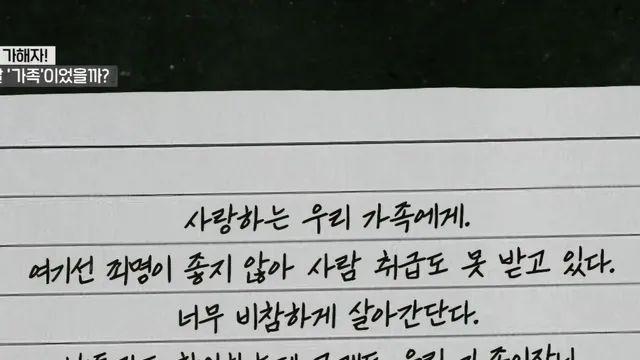 가해자!
'가족'이었을까?
사랑하는 우리 가족에게.
여기선 죄명이 좋지 않아 사람 취급도 못 받고 있다.
너무 비참하게 살아간단다.